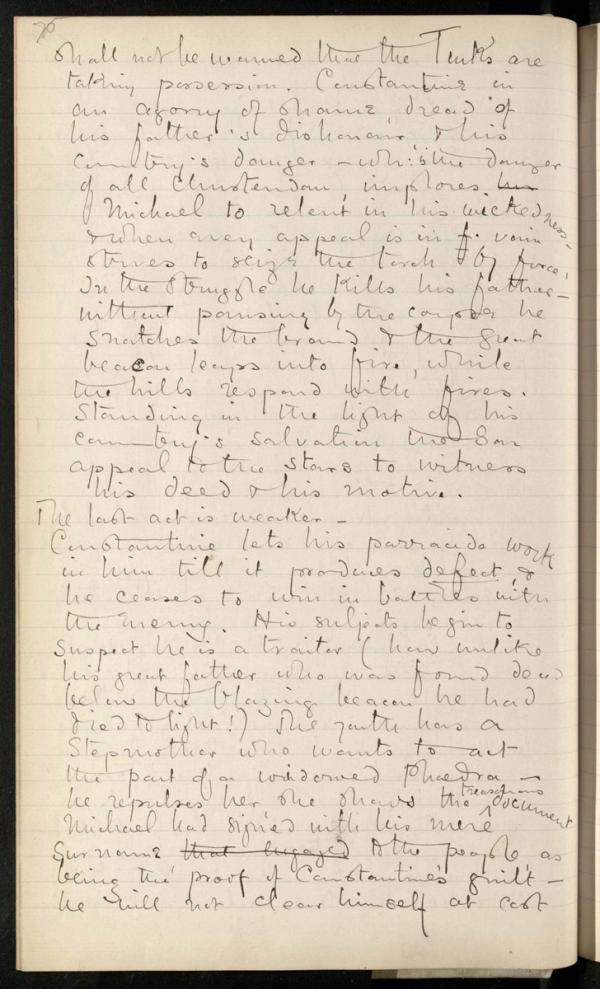 shall not be warned that the Turks are
taking possession. Constantine in
an agony of shame, dread of
his father's dishonour, & his
country's danger – wh: is the danger
of all Christendom, implores his
Michael to relent in his wickedness –
& when every appeal is in f. vain
strives to seize the torch by force.
In the struggle he kills his father –
without pausing by the corpse he
snatches the brand & the great
beacon leaps into fire, while
the hills respond with fires.
Standing in the light of his
country's salvation the Son
appeal to the stars to witness
his deed & his motive.
The last act is weaker –
Constantine lets his parracide work
in him till it produces defeat, &
he ceases to win in battles with
the enemy. His subjects begin to
suspect he is a traitor (how unlike
his great father who was found dead
below the blazing beacon he had
died to light!) The youth has a
Stepmother who wants to act
the part of a widowed Phaedra –
he repulses her she shows the treasonous document
Michael had signed with his mere
surname that engaged to the people, as
being the proof of Constantine's guilt –
he will not clear himself at cost